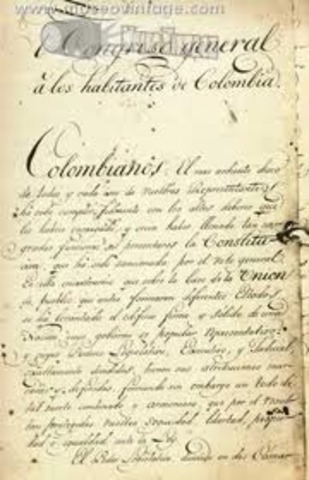 www.museovintage.com
El Congreso general
à los habitantes de Colombia.
Colombianos: El mas ardiente deseo
de todos y cada uno de vuestros Representantes
ha sido cumplir fielmente con los altos deberes que
les habeis encargado, y creen haber llenado tan sa-
gradas funciones al presentaros la Constitu-
cion, que ha sido sancionada por el voto general.
En ella encontrareis que sobre la base de Union
de pueblos que antes formaron diferentes Estados,
se ha levantado el edificio firme y sólido de una
Nacion cuyo gobierno es popular representativo,
y cuyos Poderes Legislativo, Executivo, y Judicial,
exactamente divididos, tienen sus atribuciones mar-
cadas y definidas, formando sin embargo un todo de
tal suerte combinado y armonioso, que por él resul-
tan protegidas vuestra seguridad, libertad, propie-
dad e igualdad ante la Ley.
El Poder Legislativo, dividido en dos Cámar